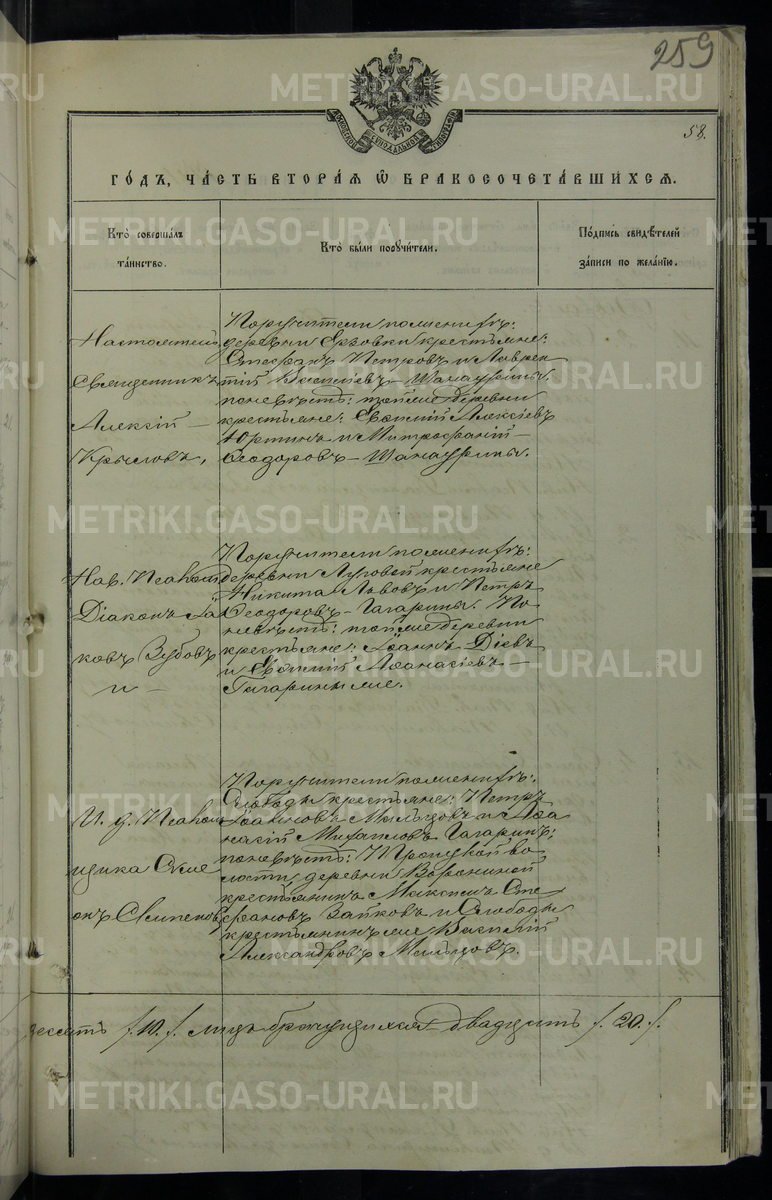 259
58.
МОСКОВСКОЙ СѴНОДАЛЬНОЙ ТИПОГРАФІИ
ГО́ДЪ, ЧА́СТЬ ВТОРА́Ѧ Ѡ҆ БРАКОСОЧЕТА́ВШИХСѦ.
Кто̀ соверша́лъ
та́инство.
Кто̀ бы́ли порꙋчи́тели.
По́дпись свидѣ́телей
за́писи по жела́нїю.
Настоятель
Священникъ
Алексій
Крыловъ,
Поручители по женихѣ:
деревни Ерзовки крестьяне:
Стефанъ Петровъ и Лаврен
тій Васильевъ Шанаурины.
по невѣстѣ: той же деревни
крестьяне: Евѳимій Алексіевъ
Юртинъ и Митрофаній
Ѳеодоровъ Шанаурины.
На в. Псалом
Діаконъ Іа
ковъ Зубовъ
и
Поручители по женихѣ:
деревни Луговой крестьяне
Никита Львовъ и Петръ
Ѳеодоровъ Гагарины. По
невѣстѣ: той же деревни
крестьяне: Іоаннъ Діевъ
и Евѳимій Аѳанасіевъ
Гагарины же.
И. д. Псалом
щика Симе
онъ
Поручители по женихѣ:
Слободы крестьяне: Петръ
Іоанновъ Мальцовъ и Аѳа
насій Михаиловъ Гагаринъ:
по невѣстѣ: Троицкой во
лости деревни Ворониной
крестьянинъ Максимъ Сте
фановъ Зайковъ и Слободы
крестьянинъ же Василій
Александровъ Мальцовъ.
десять /.10./. лицъ брачущихся двадцать /.20./.
METRIKI.GASO-URAL.RU